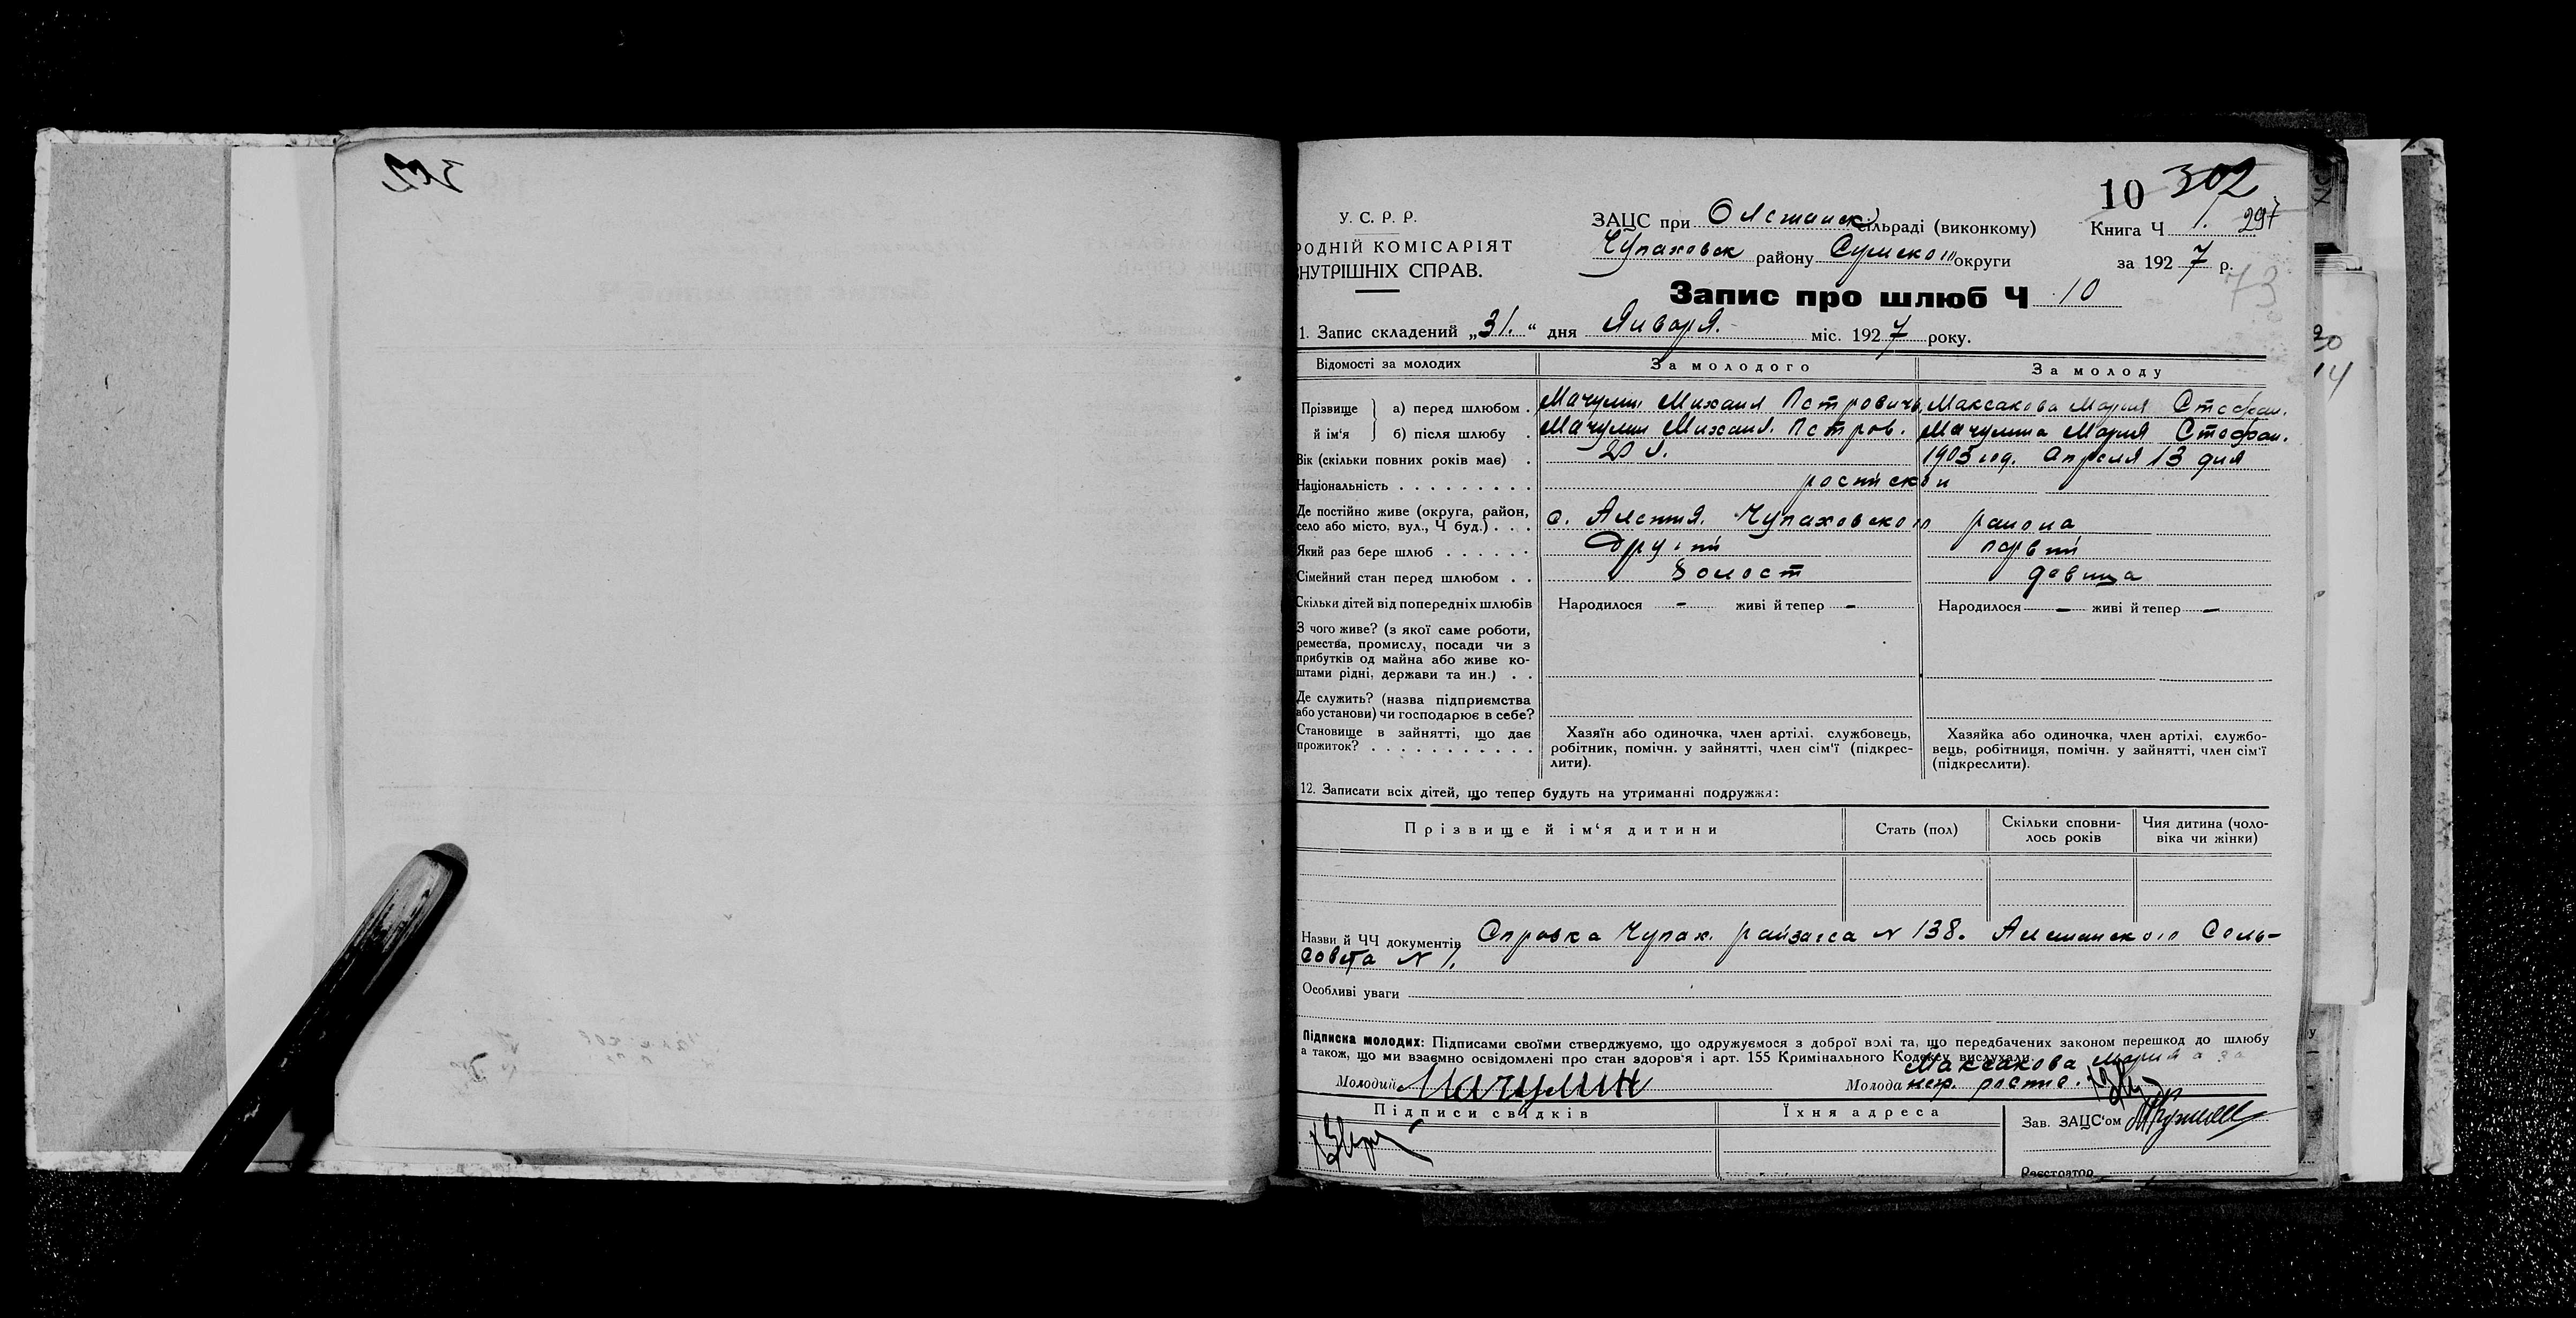 10 302
У. С. Р. Р.
РОДНІЙ КОМІСАРІЯТ
ВНУТРІШНІХ СПРАВ.
ЗАЦС при сільраді (виконкому)
Чупаховск району Сумского округи
Книга Ч 1. 297
за 1927 р.
73
Запис про шлюб Ч 10
1. Запис складений „31.“ дня Января. міс. 1927 року.
Відомості за молодих За молодого За молоду
Прізвище й ім‘я а) перед шлюбом . Мачулин Михаил Петрович Максакова Мария Стефан.
б) після шлюбу . Мачулин Михаил. Петров. Мачулина Мария Стефан.
Вік (скільки повних років має) . 20 л. 1905 год. Апреля 13 дня
Національність . . . . . . . . .
Де постійно живе (округа, район,
село або місто, вул., Ч буд.) . . . с. Алешня. Чупаховского района
Який раз бере шлюб . . . . . . первый
Сімейний стан перед шлюбом . . холост девица
Скільки дітей від попередніх шлюбів Народилося - живі й тепер - Народилося - живі й тепер -
З чого живе? (з якої саме роботи,
ремества, промислу, посади чи з
прибутків од майна або живе ко-
штами рідні, держави та ин.) . .
Де служить? (назва підприємства
або установи) чи господарює в себе?
Становище в зайнятті, що дає
прожиток? . . . . . . . . . . .
Хазяїн або одиночка, член артілі, службовець,
робітник, помічн. у зайнятті, член сім‘ї (підкрес-
лити).
Хазяйка або одиночка, член артілі, службо-
вець, робітниця, помічн. у зайнятті, член сім‘ї
(підкреслити).
12. Записати всіх дітей, що тепер будуть на утриманні подружжя:
Прізвище й ім‘я дитини Стать (пол) Скільки сповни-
лось років Чия дитина (чоло-
віка чи жінки)
Назви й ЧЧ документів Справка Чупах. райзагса N 138. Алешанского Сель-
совета N 1.
Особливі уваги
Підписка молодих: Підписами своїми стверджуємо, що одружуємося з доброї волі та, що передбачених законом перешкод до шлюбу
а також, що ми взаємно освідомлені про стан здоров‘я і арт. 155 Кримінального Кодексу вислухали.
Максакова
Молодий Мачулин Молода
Підписи свідків Їхня адреса Зав. ЗАЦС‘ом
Реєстратор